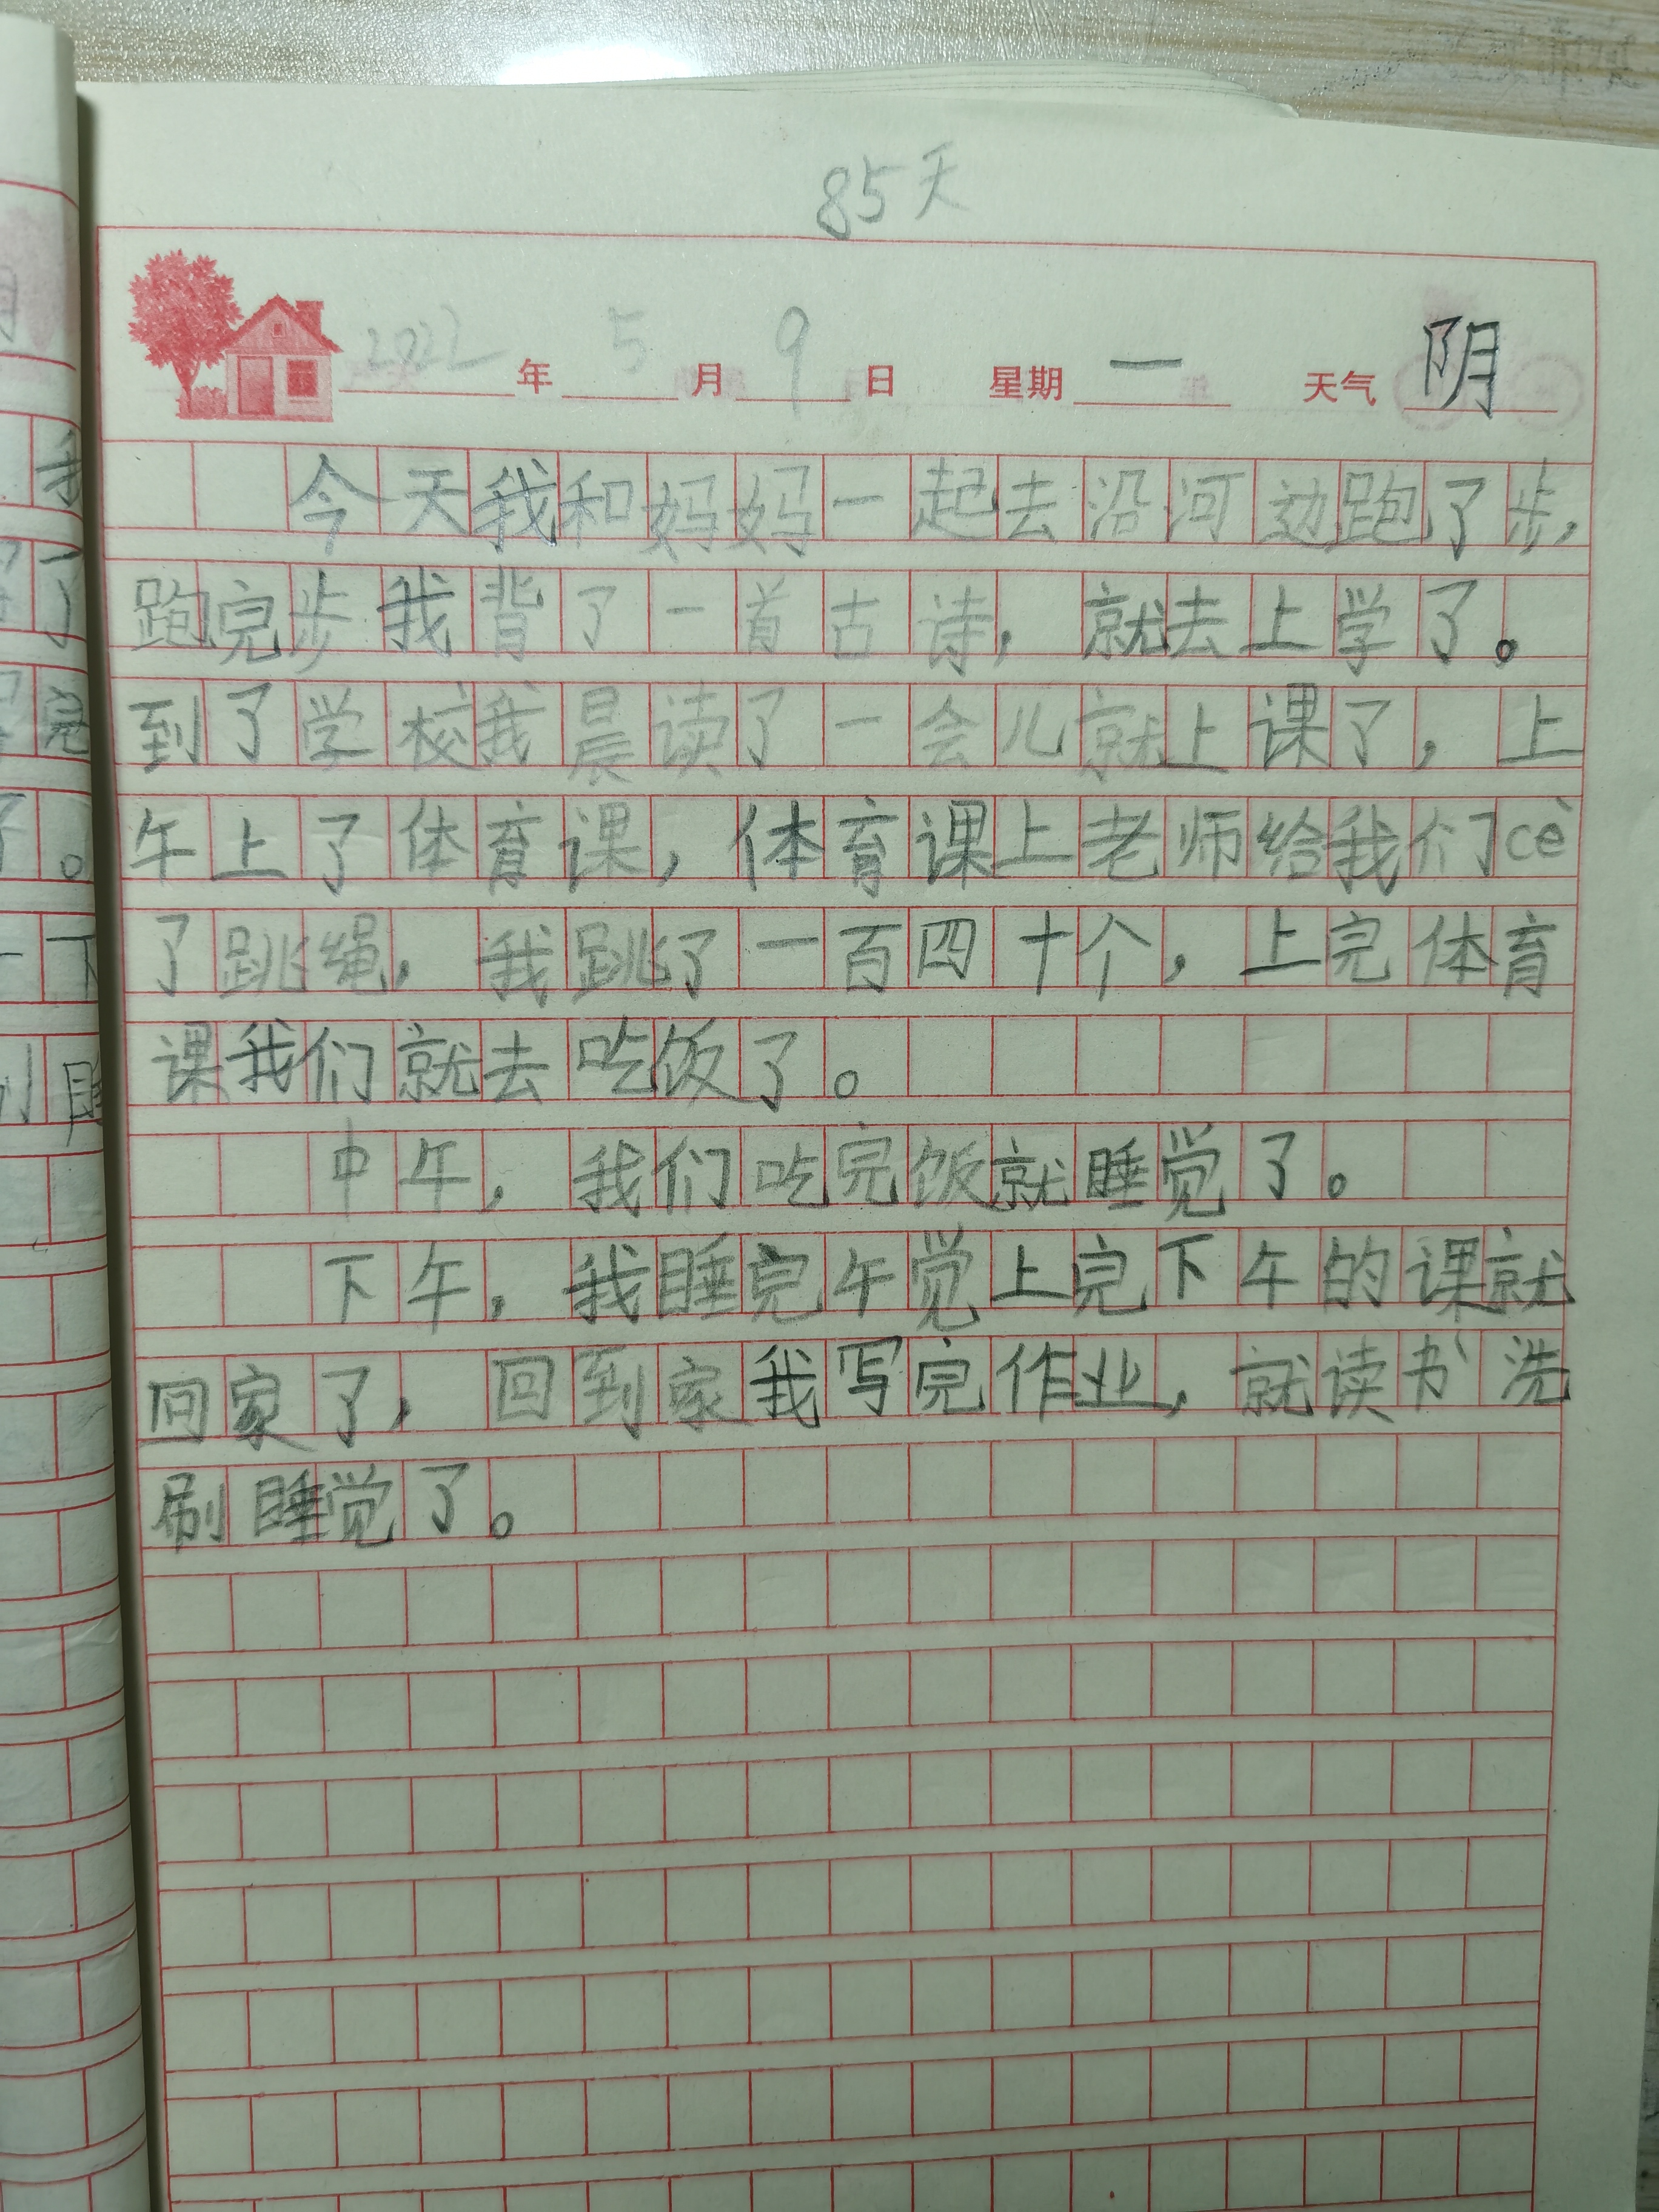 85天
2022年5月9日 星期一 天气阴
今天我和妈妈一起去沿河边跑了步，
跑完步我背了一首古诗，就去上学了。
到了学校我晨读了一会儿就上课了，上
午上了体育课，体育课上老师给我们cè
了跳绳，我跳了一百四十个，上完体育
课我们就去吃饭了。
中午，我们吃完饭就睡觉了。
下午，我睡完午觉上完下午的课就
回家了，回到家我写完作业，就读书洗
刷睡觉了。